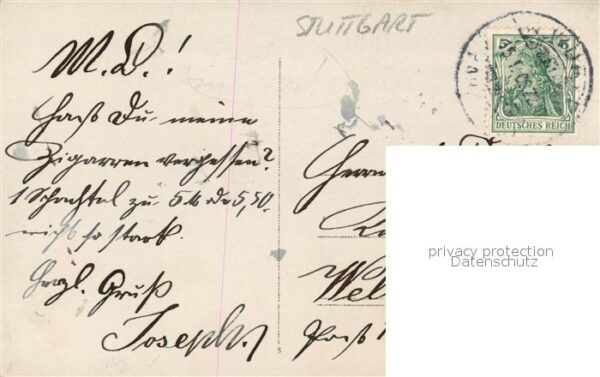 STUTTGART
M. L.!
Hast Du meine
Zigarren vergessen?
1 Schachtel zu 5 M do 5,50.
nicht so stark.
Herzl. Gruß
Joseph.
5
DEUTSCHES REICH
Herrn
Wel
Post
privacy protection
Datenschutz